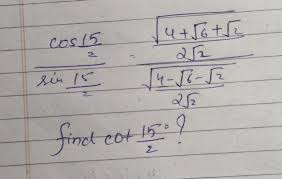 cos 15/2 / sin 15/2 = (√(4+√6+√2) / 2√2) / (√(4-√6-√2) / 2√2)
find cot 15°/2 ?